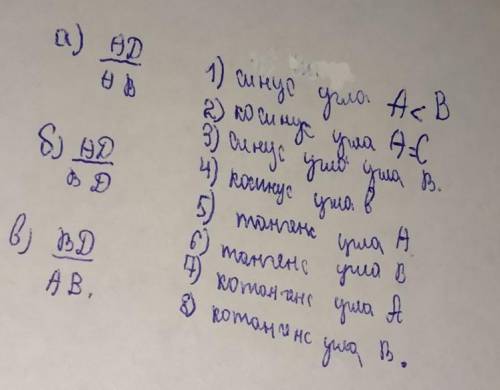 а) AD
AB
б) AD
BD
в) BD
AB.
1) синус угла A< B
2) косинус угла A=C
3) синус угла угла B.
4) косинус угла B
5) тангенс угла A
6) тангенс угла B
7) котангенс угла A
8) котангенс угла B.